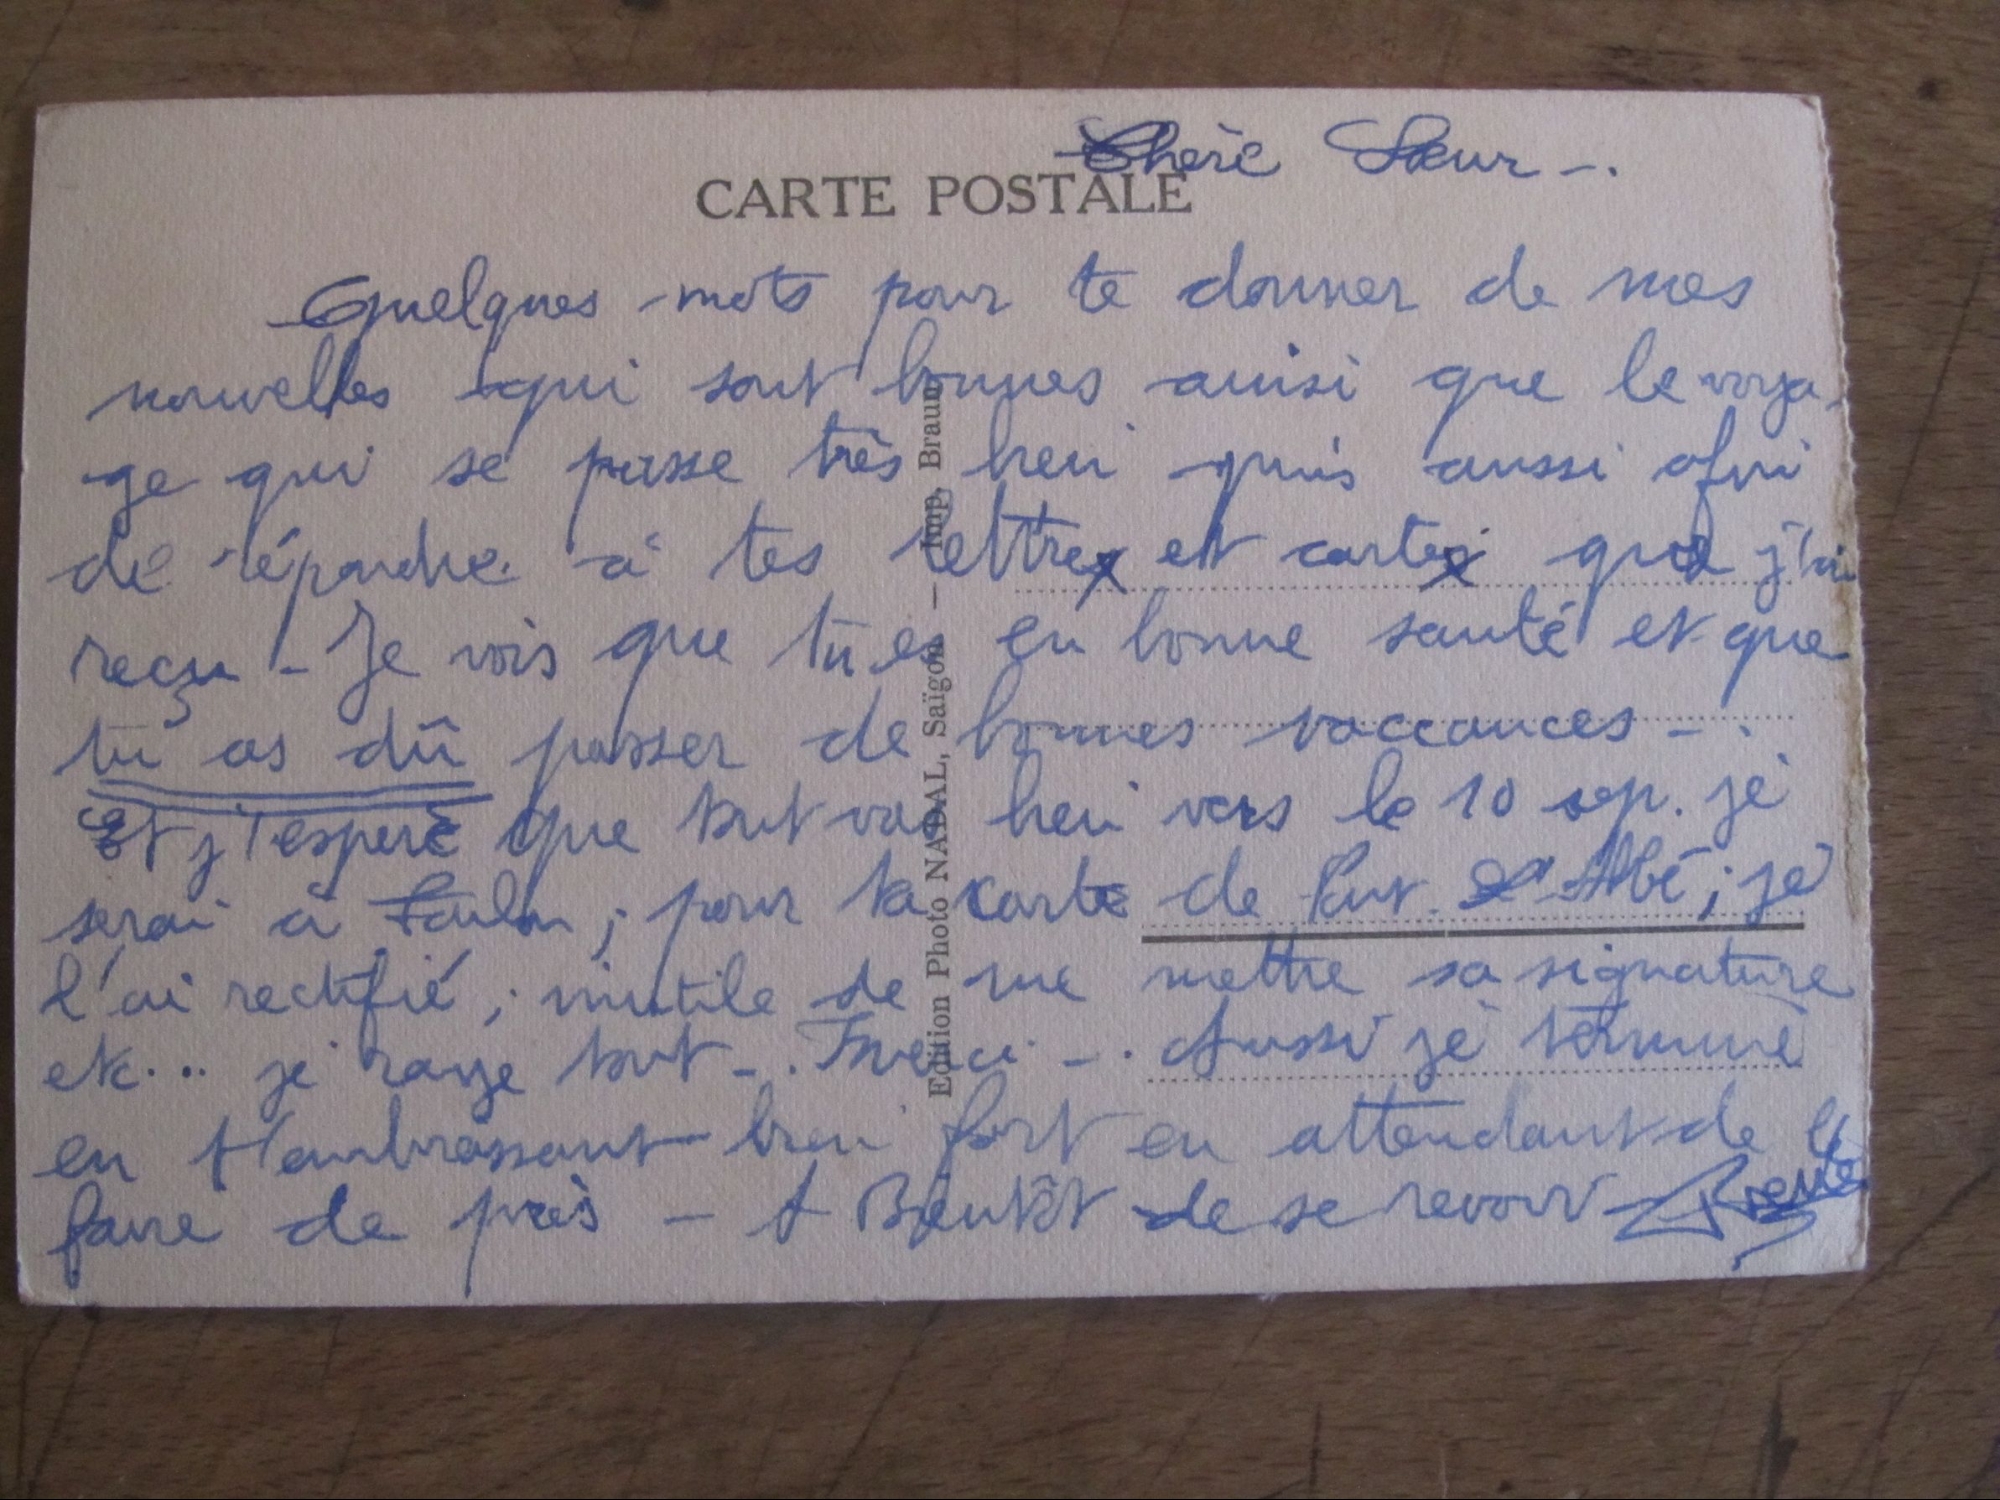 Chère Sœur -.
CARTE POSTALE
Quelques mots pour te donner de mes
nouvelles qui sont bonnes ainsi que le voya-
ge qui se passe très bien puis aussi afin
de répondre à tes lettre et carte que j'ai
reçu - Je vois que tu es en bonne santé et que
tu as dû passer de bonnes vaccances - .
Et j'espère que tout va bien vers le 10 sep. je
serai à Toulon ; pour ta carte de Pont-L'Abbé ; je
l'ai rectifié ; inutile de me mettre sa signature
etc... je raye tout - . - . Aussi je termine
en t'embrassant bien fort en attendant de le
faire de près - A Bientôt de se revoir René
Edition Photo NADAL, Saïgon — Imp. Braun